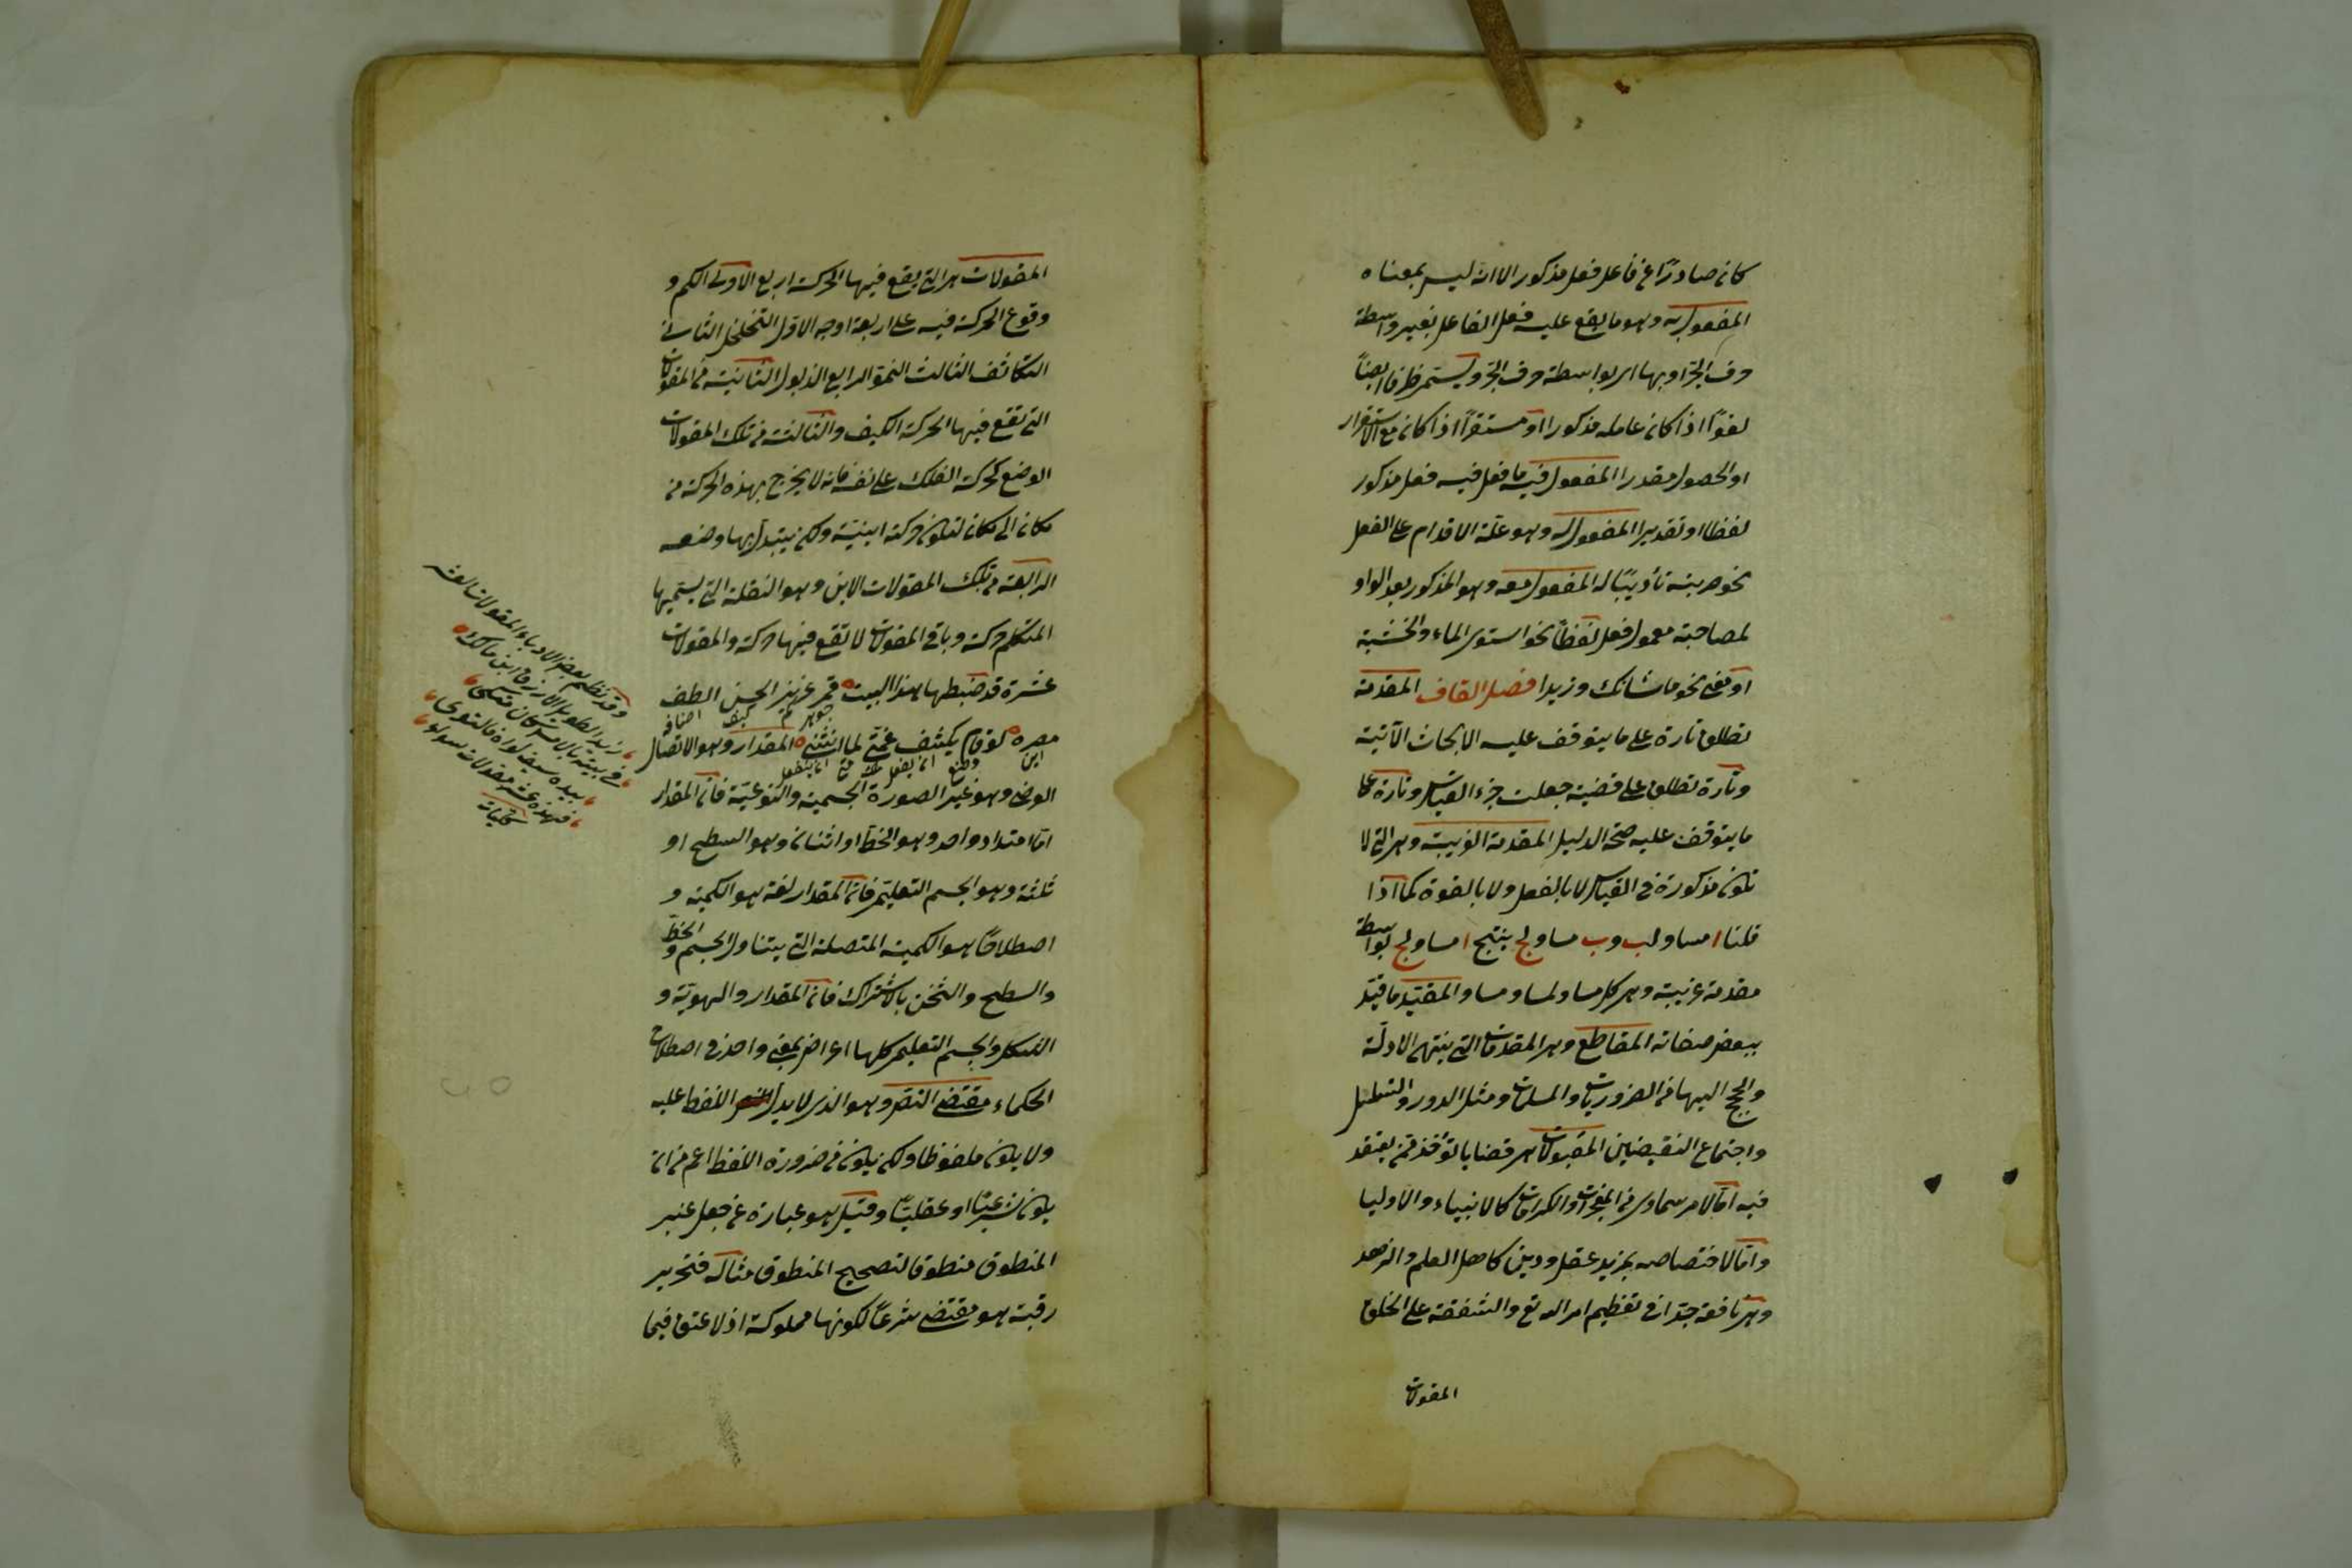 كان صادرًا عن فاعل فعل مذكور الا انه ليس بمعناه
المفعول به وهو ما يقع عليه فعل الفاعل بغير واسطة
حرف الجر او بها اى بواسطة حرف الجر ويسمى ظرفا ايضاً
لغوًا اذا كان عامله مذكورا او مستقراً اذا كان مع الاستقرار
او الحصول مقدرا المفعول فيه ما فعل فيه فعل مذكور
لفظا او تقديرا المفعول له وهو علّة الاقدام على الفعل
نحو ضربته تأديبًا له المفعول معه وهو المذكور بعد الواو
لمصاحبة معمول فعل لفظاً نحو استوى الماء والخشبة
او معنى نحو ما شانك وزيدا فصل القاف المقدمة
تطلق تارة على ما يتوقف عليه الابحاث الآتية
وتارة تطلق على قضية جعلت جزء القياس وتارة على
ما يتوقف عليه صحة الدليل المقدمة الغريبة وهى التى لا
تكون مذكورة فى القياس لا بالفعل ولا بالقوة كما اذا
قلنا ا مساو لب وب مساو لج ينتج ا مساو لج بواسطة
مقدمة غريبة وهى كل مساو لمساو مساو المقيّد ما قيّد
ببعض صفاته المقاطع وهى المقدمات التى ينتهى الادلّة
والحجج اليها من الضروريات والمسلمات ومثل الدور والتسلسل
واجتماع النقيضين المقبولات هى قضايا تؤخذ ممن يعتقد
فيه امّا لامر سماوى من المعجزات والكرامات كالانبياء والاوليا
وامّا لاختصاصه بمزيد عقل ودين كاهل العلم والزهد
وهى نافعة جدّا فى تعظيم امر الله تع والشفقة على الخلق
المقولات
المقولات هى التى يقع فيها الحركة اربع الاولى الكم و
وقوع الحركة فيه على اربعة اوجه الاوّل التخلخل الثانى
التكاثف الثالث النموّ الرابع الذبول الثانية من المقولات
التى تقع فيها الحركة الكيف والثالثة من تلك المقولات
الوضع كحركة الفلك على نفسه فانه لا يخرج بهذه الحركة من
مكان الى مكان لتكون حركته اينيّة ولكن يتبدل بها وضعه
الرابعة من تلك المقولات الاين وهو النقلة التى يسمّيها
المتكلم حركة وباقى المقولات لا تقع فيها حركة والمقولات
عشرة قد ضبطها هذا البيت قمر عزيز الحسن الطف
جوهر كم كيف اضافه
مصره لو قام يكشف غمّتى لما انثنى المقدار وهو الاتصال
اين وضع ان يفعل ملك متى ان ينفعل
العرضى وهو غير الصورة الجسمية والنوعيّة فان المقدار
امّا امتداد واحد وهو الخط او اثنان وهو السطح او
ثلثة وهو الجسم التعليمى فان المقدار لغة هو الكمية و
اصطلاحًا هو الكمية المتصلة التى يتناول الجسم والخط
والسطح والثخن بالاشتراك فان المقدار والهويّة و
الشكل والجسم التعليمى كلها اعراض بمعنى واحد فى اصطلاح
الحكماء مقتضى النص وهو الذى لا يدل اللفظ عليه
ولا يكون ملفوظا ولكن يكون من ضرورة اللفظ اعم من ان
يكون شرعيّا او عقليّا وقيل هو عبارة عن جعل غير
المنطوق منطوقا لتصحيح المنطوق مثاله فتحرير
رقبة هو مقتضى شرعاً لكونها مملوكة اذ لا عتق فيما
وقد نظم بعض الادباء المقولات العشر
زيد الطويل الازرق ابن مالك
فى بيته بالامس كان متكى
بيده سيف لواه فالتوى
فهذه عشر مقولات سوا
كليات